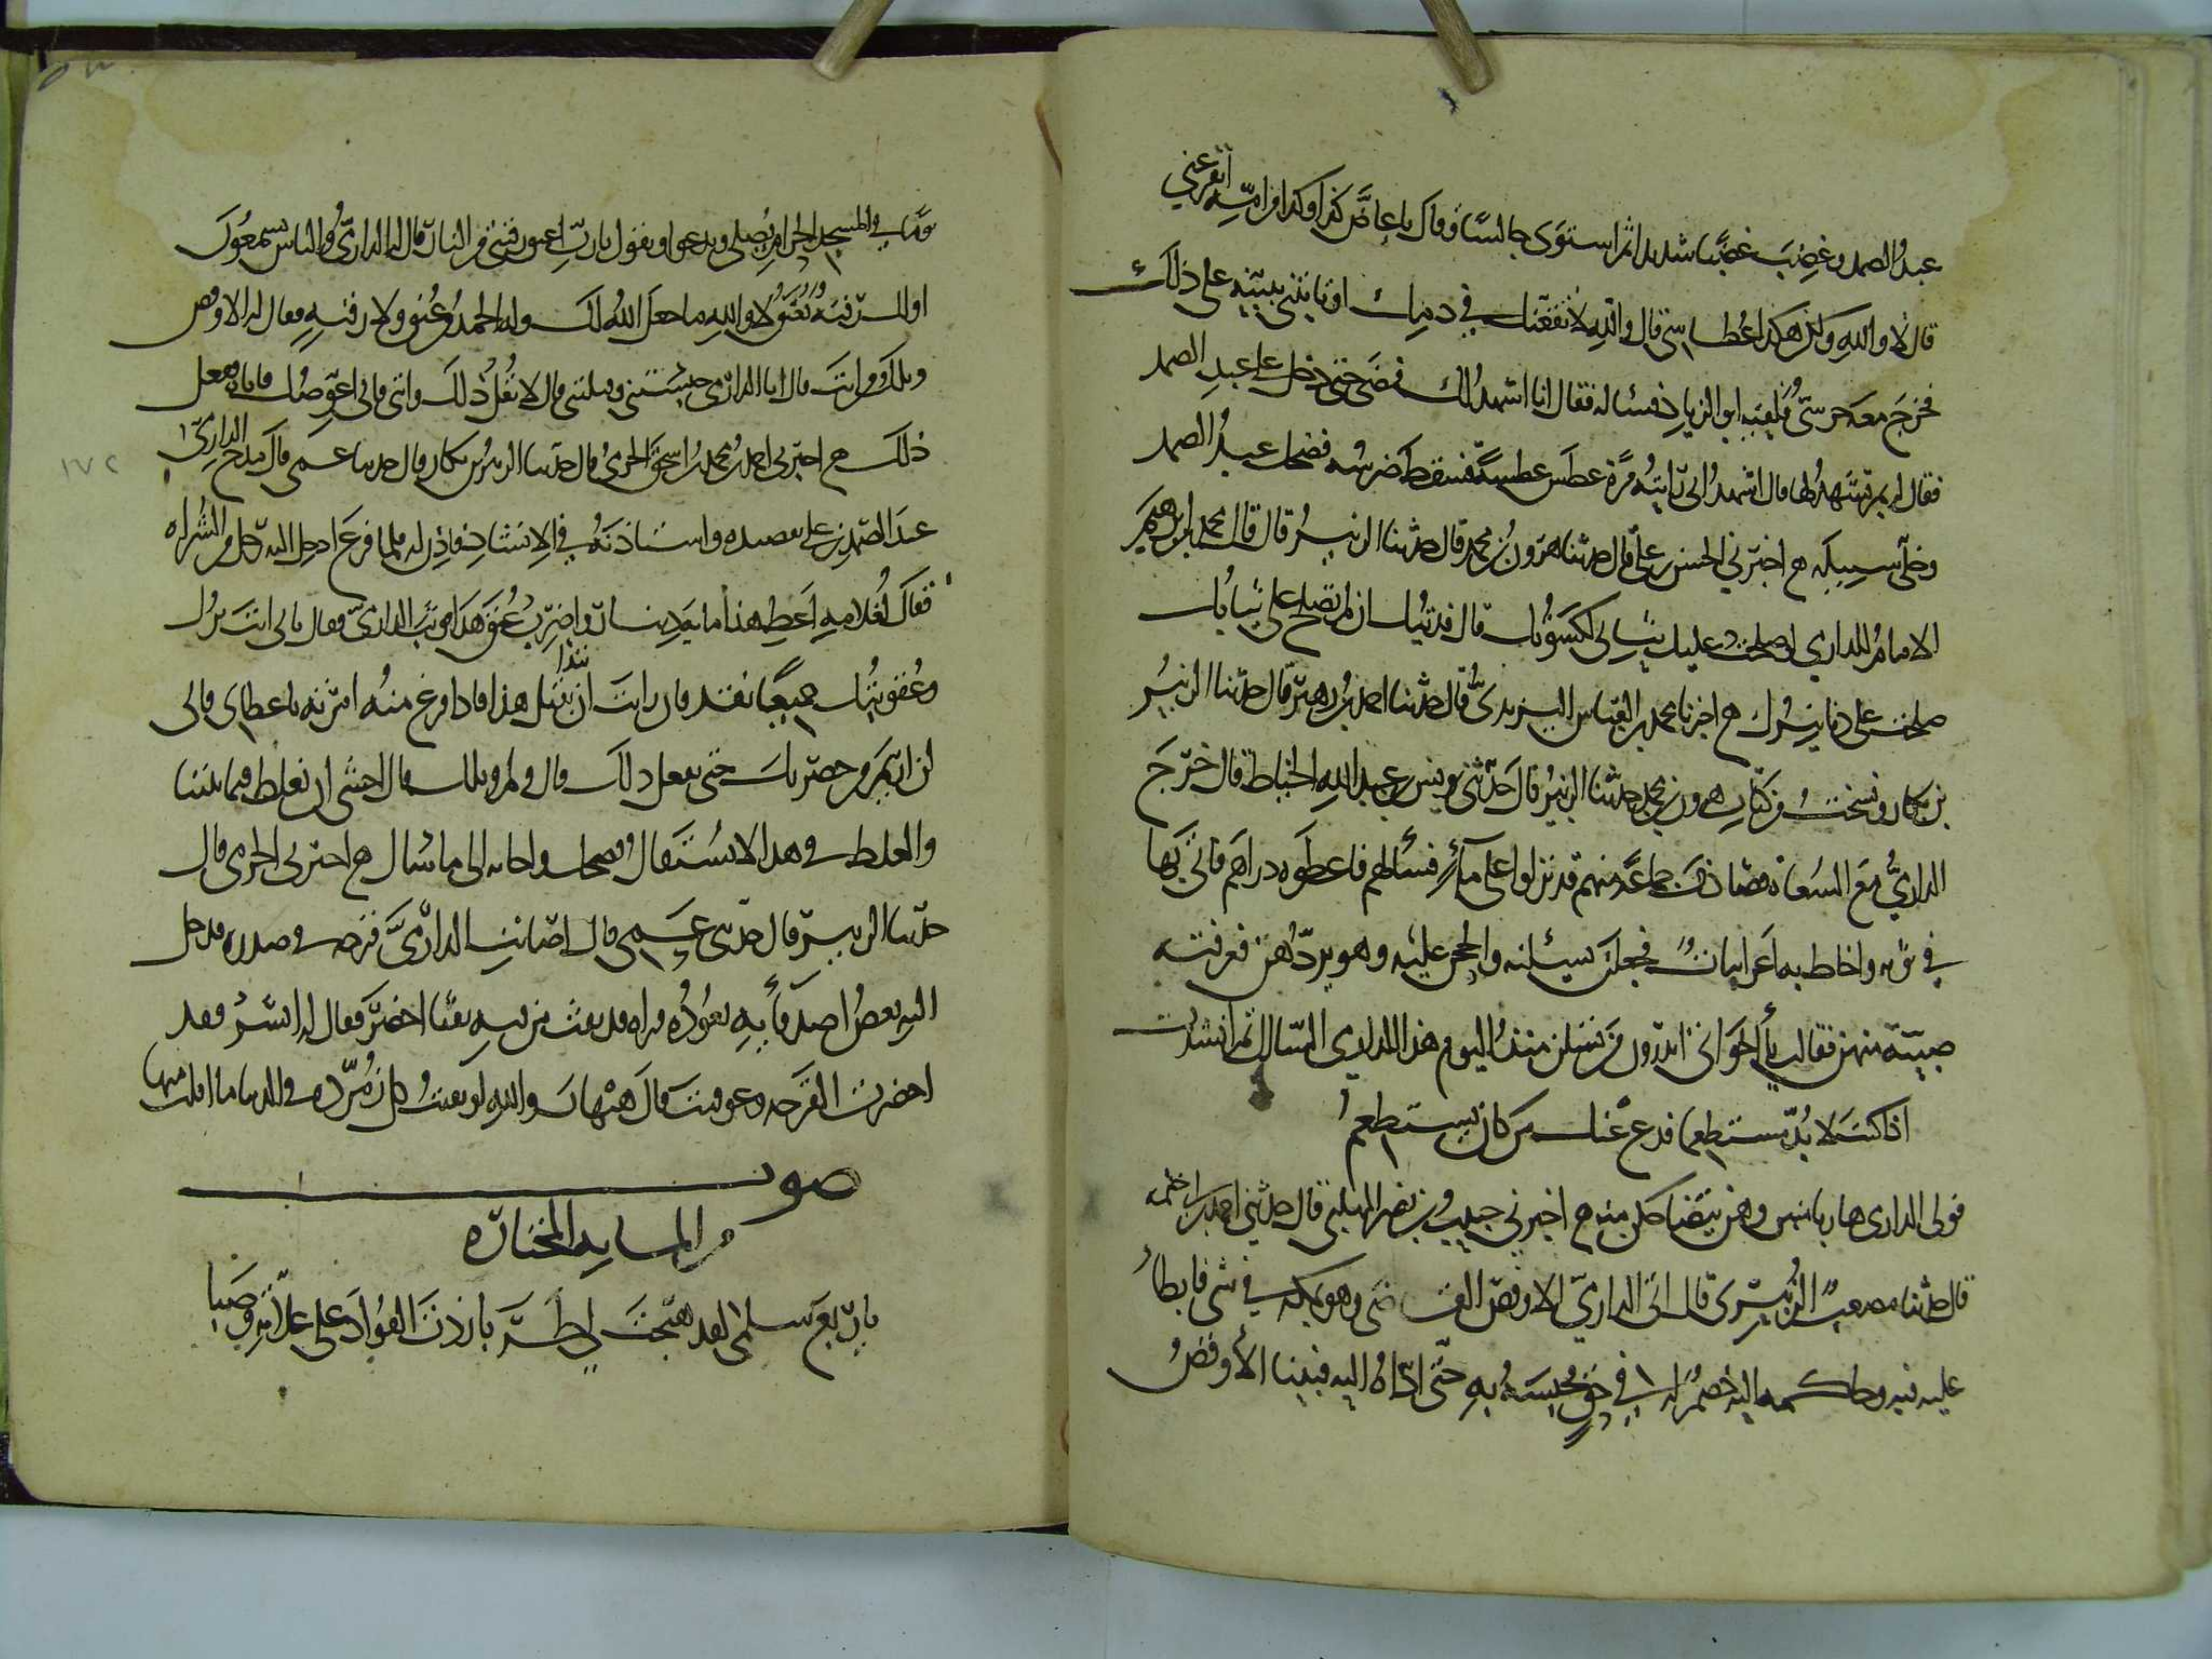 عبدُ الصمد وغضِبَ غضبًا شديدا ثم استوَى جالسًا وقال ياعاضَّ كذا وكذا من امّه أتفزعني
قال لا والله ولكن هكذا عُطاسي قال والله لأنقعنّك في دمك او تاتيني ببيّنه على ذلك
فخرجَ معه حرسيٌّ فلقيه ابو الزياد فسأله فقال انا اشهد لك فمضى حتى دخل على عبد الصمد
فقال له بم تشهد لهذا قال اشهد اني رايته مرة عطس عطسةً فسقط ضرسُه فضحك عبدُ الصمد
وخلّى سبيله ح اخبرني الحسن بن علي قال حدثنا هرون بن محمد قال حدثنا الزبيرُ قال قال محمد بن ابرهيم
الامامُ للداري لو صلحت عليك ثيابي لكسوتك قال فديتك ان لم تصلح علي ثيابك
صلحت علي دنانيرك ح اخبرنا محمد بن العباس اليزيديُّ قال حدثنا احمد بن زهير قال حدثنا الزبيرُ
بن بكار ونسختُ من كتاب هرون بن محمد حدثنا الزبيرُ قال حدّثني يونس بن عبد الله الخياط قال خرجَ
الداريُّ مع السُعاة فصادف جماعةً منهم قد نزلوا على ماءٍ فسألهم فاعطوه دراهم فاتى بها
في ثوبه واحاط به اعرابيات فجعلن يسئلنه والححن عليه وهو يردّهن فعرفته
صبيّة منهن فقالت يا اخواتي اتدرون من تسئلن منذُ اليوم هذا الداري السّال ثم انشدت
اذا كنت لا بُدّ مستطعما فدع عنك من كان يستطعم
فولى الداري هاربا منهن وهن يتضاحكن منه ح اخبرني حبيب بن نصر المهلبي قال حدثني احمد بن ابي خيثمه
قال حدثنا مصعب الزبيري قال اتى الداريّ الاوقص القاضي وهو بمكه في شي فابطأ
عليه فيه وحاكمه اليه خصمٌ له في حقٍ فحبسهُ به حتّى ادّاهُ اليه فبينا الأوقصُ
يومًا في المسجد الحرام يُصلي ويدعوا ويقول يا ربّ اعتق رقبتي من النار قال له الداريُّ والناس يسمعون
اولك رقبه تُعتَق لا والله ما جعل الله لك وله الحمدُ من عُنق ولا رقبه فقال له الاوقص
ويلك من انت قال انا الداريّ حبستني وقتلتني قال لا تقُل ذلك واتني فاني اعوّضك فاتاه ففعل
ذلك ح اخبرني احمد بن محمد بن اسحق الحرميُّ قال حدثنا الزبيرُ بن بكار قال حدثنا عمي قال مدح الداريّ
عبدَ الصّمد بن علي بقصيده واستاذنهُ في الانشاد فاذِن له فلما فرغ ادخل اليه رجل من الشراه
فقال لغلامِه اَعطِ هذا مايَه دينار واضرب عُنق هذا فوثب الداريّ فقال بابي انت برُّك
وعُقوبتُك جميعا نقد فان رايت ان تبتدا بقتل هذا فاذا فرغ منه امرته باعطاي فاني
لن اريم من حضرتك حتى يفعل ذلك قال ولم ويلك قال اخشى ان يغلط فيما بيننا
والغلط في هذا لا يُستقال فضحك واجابه الى ما سال ح اخبرني الحرمي قال
حدّثنا الزبير قال حدّثني عمي قال اصابت الداريَّ قرحه في صدره فدخل
اليه بعضُ اصدقائِه يعُودُه فراه قد نفث من فيه نفثًا اخضرَ فقال له ابشر فقد
اخضرت القرحه وعوفيت قال هيهات والله لو نفثتُ كل زمرّده في الدنيا ما افلت منها
صوت
من المايه المختاره
يا ربع سلمى لقد هيجت لي طربَا زدتَ الفؤادَ على علاّته وصَبا
١٧٢